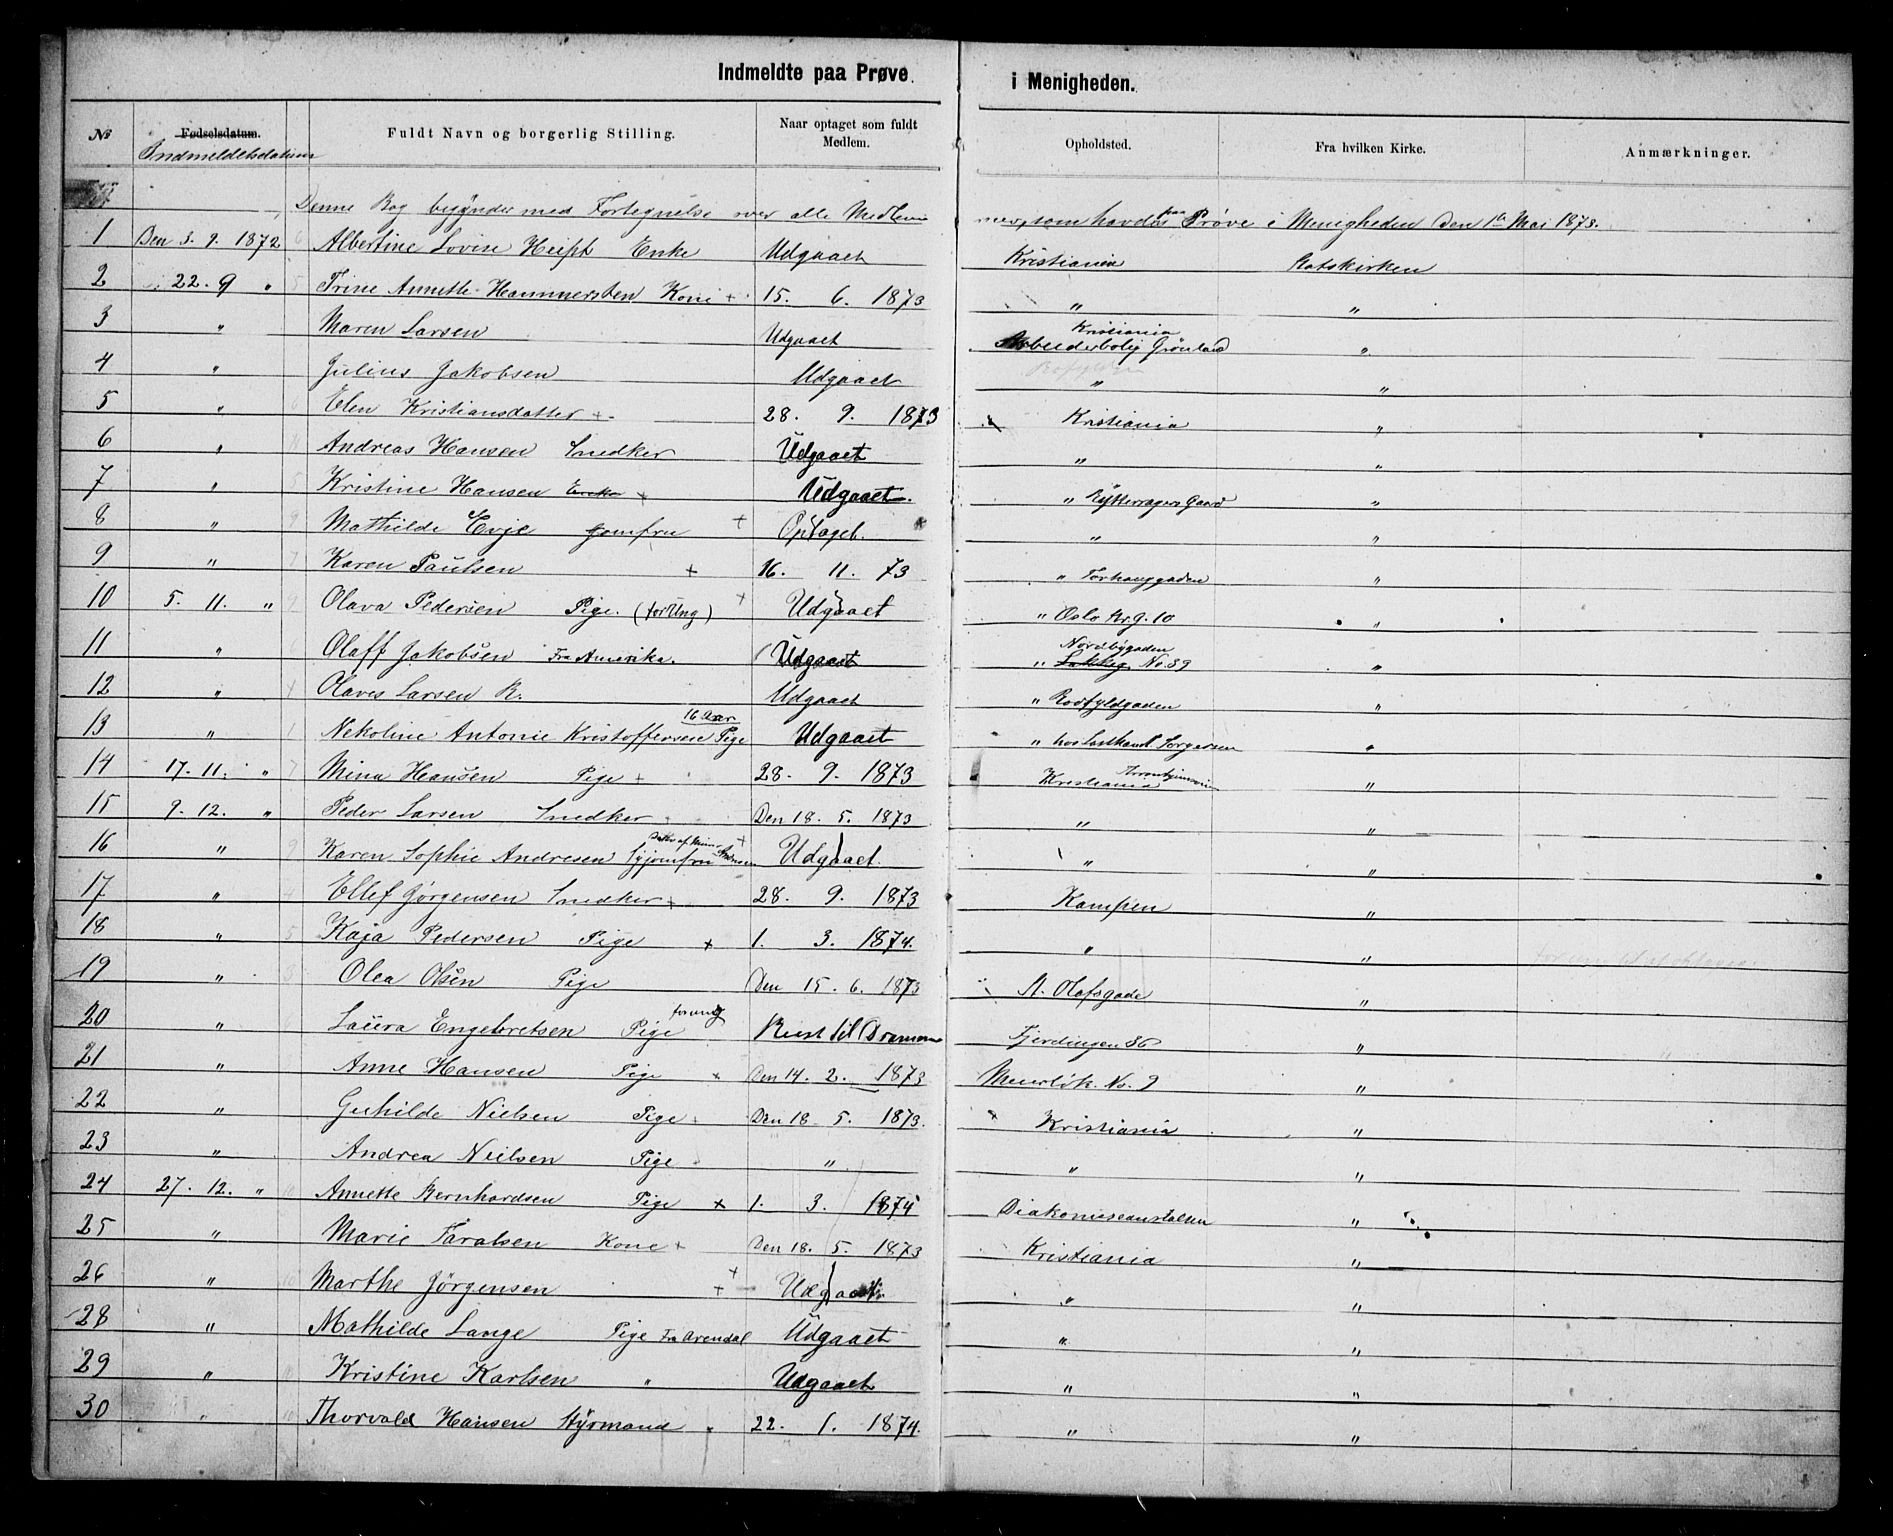 Indmeldte paa Prøve i Menigheden.
№ Fødselsdatum. Indmeldelsdatum Fuldt Navn og borgerlig Stilling. Naar optaget som fuldt Medlem. Opholdsted. Fra hvilken Kirke. Anmærkninger.
Denne Bog begynder med Fortegnelse over alle Medlem mer, som havdes paa Prøve i Menigheden Den 1ª Mai 1873.
1 Den 3. 9. 1872 Albertine Lovise Enke Udgaaet Kristiania Statskirken
2 22. 9 " Trine Annette Hammersten Kone + 15. 6. 1873 " "
3 " Maren Larsen Udgaaet Kristiania Arbeiderbolig Grønland "
4 " Julius Jakobsen Udgaaet " "
5 " Elen Kristiansdatter + 28. 9. 1873 Kristiania "
6 " Andreas Hansen Snedker Udgaaet " "
7 " Kristine Hansen + Udgaaet. " Gaard "
8 " Mathilde Evje Jomfru + Optaget. " "
9 " Karen Paulsen + 16. 11. 73 " "
10 5. 11. " Olava Pedersen Pige. (for Ung) + Udgaaet " Oslo 10 "
11 " Olaff Jakobsen Fra Amerika. Udgaaet " Nordbygaden No. 39 "
12 " Olaves Larsen R. Udgaaet " "
13 " Nekoline Antonie Kristoffersen 16 Aar Pige Udgaaet " hos "
14 17. 11. " Mina Hansen Pige + 28. 9. 1873 Kristiania "
15 9. 12. " Peder Larsen Snedker Den 18. 5. 1873 " "
16 " Karen Sophie Andresen Syjomfru + Udgaaet " "
17 " Ellef Jørgensen Snedker + 28. 9. 1873 Kampen "
18 " Kaja Pedersen Pige + 1. 3. 1874. " "
19 " Olea Olsen Pige Den 15. 6. 1873 St. Olafsgade "
20 " Laura Engebretsen Pige for ung Reist til Drammen Fjerdingen 36 "
21 " Anne Hansen Pige + Den 14. 2. 1873 No. 9 "
22 " Guhilde Nielsen Pige Den 18 5. 1873. Kristiania "
23 " Andrea Nielsen Pige " " "
24 27. 12. " Annette Bernhardsen Pige + 1. 3. 1874 Diakonisseanstalten "
25 " Marie Taralsen Kone + Den 18. 5. 1873 Kristiania "
26 " Marthe Jørgensen + Udgaaet " "
28 " Mathilde Lange Pige Fra Arendal Udgaaet " "
29 " Kristine Karlsen " Udgaaet " "
30 " Thorvald Hansen Styrmand 22. 1. 1874. " "